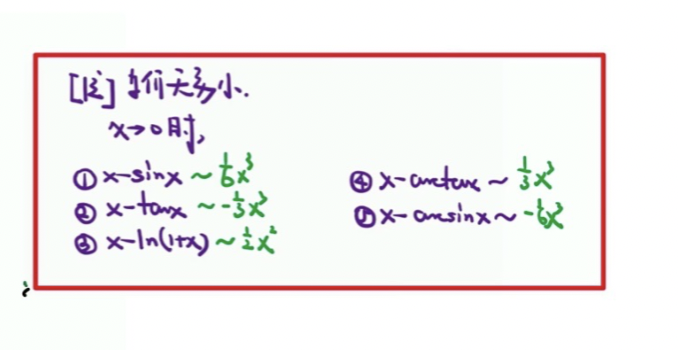 [注] 等价无穷小.
x→0时,
① x-sinx ~ 1/6 x³
② x-tanx ~ -1/3 x³
③ x-ln(1+x) ~ 1/2 x²
④ x-arctanx ~ 1/3 x³
⑤ x-arcsinx ~ -1/6 x³